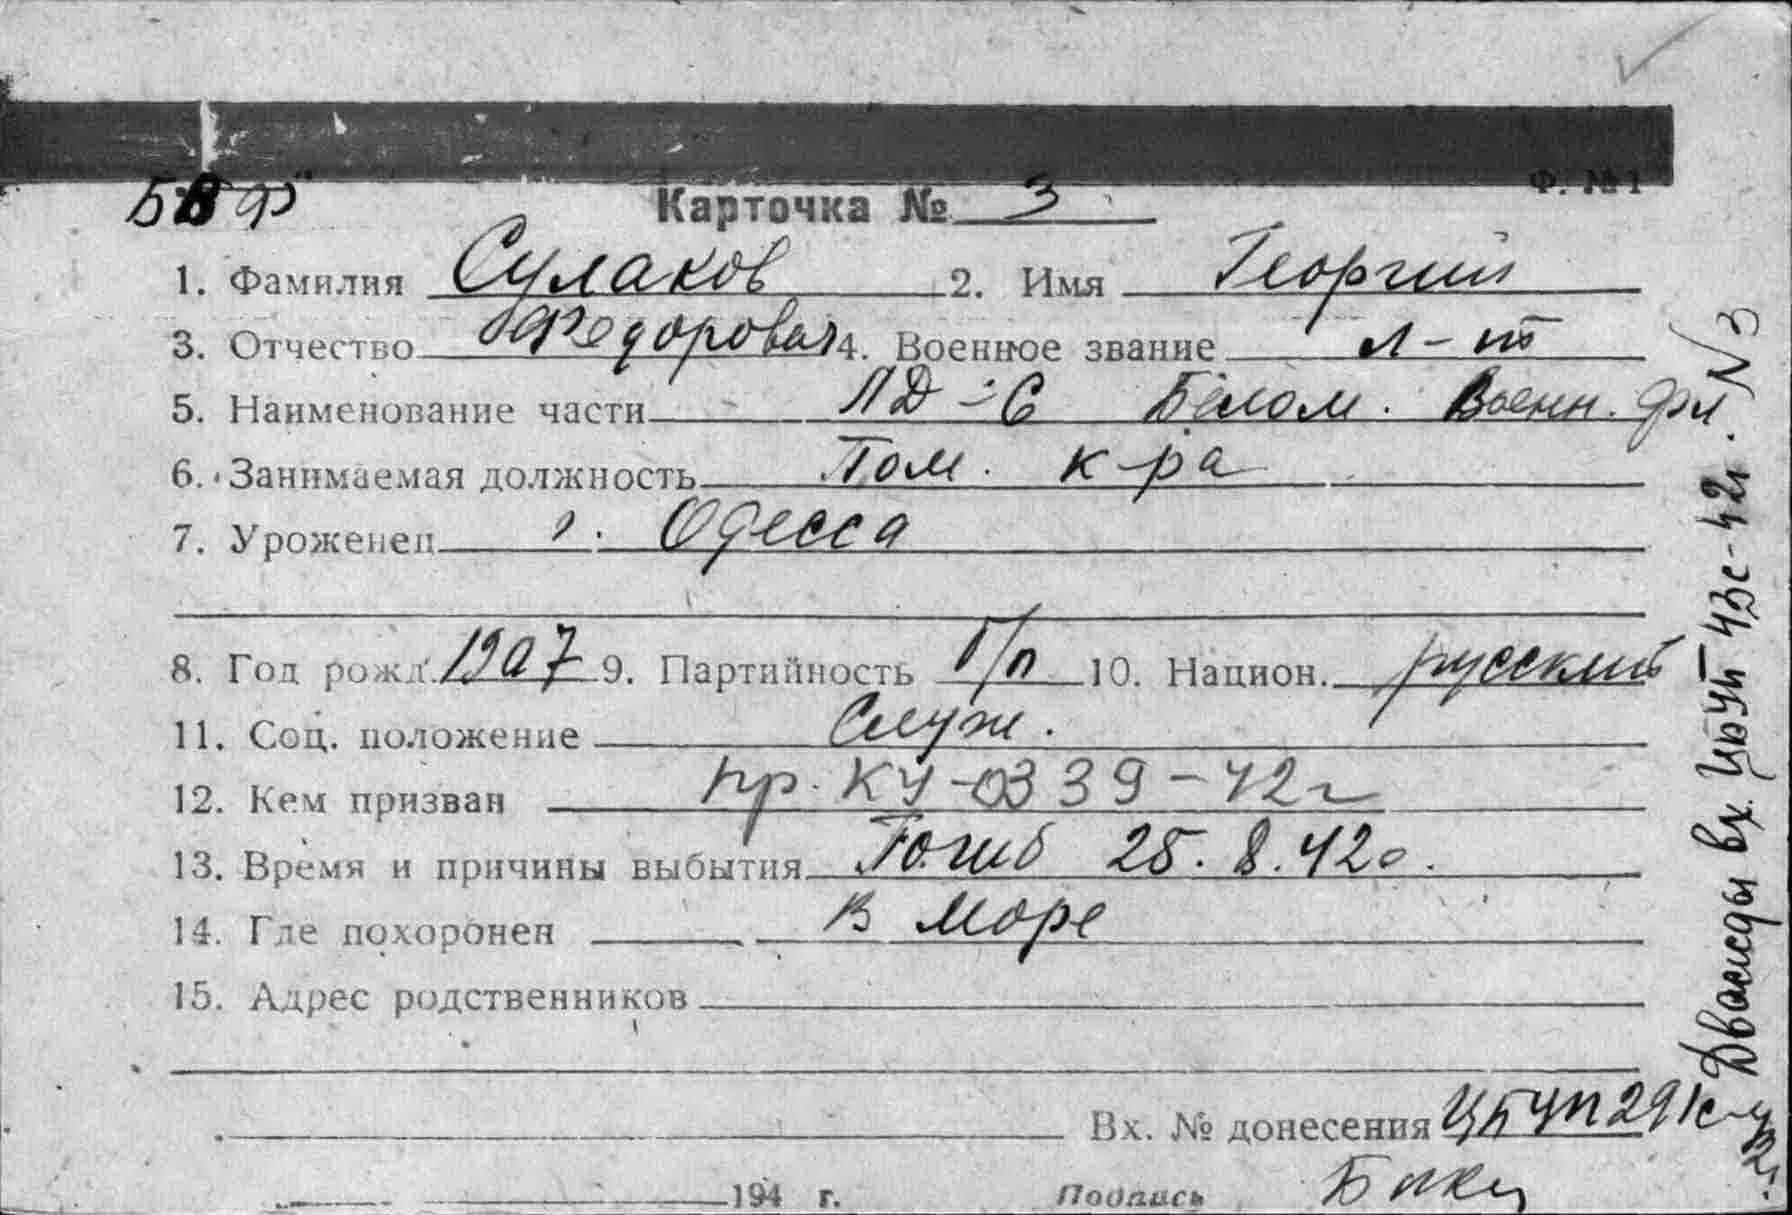 БВФ Карточка № 3 Ф. №1
1. Фамилия Сулаков 2. Имя Георгий
3. Отчество Федорович 4. Военное звание л-т
5. Наименование части ЛД-6 Белом. Военн. фл
6. Занимаемая должность Пом. к-ра
7. Уроженец г. Одесса
8. Год рожд. 1907 9. Партийность б/п 10. Национ. русский
11. Соц. положение Служ.
12. Кем призван пр. КУ-0339-42г
13. Время и причины выбытия Погиб 25.8.42г.
14. Где похоронен В море
15. Адрес родственников
Вх. № донесения ЦБУП 291с-42г.
194 г. Подпись
Дважды вх. ЦБУП 43с-42г. N 3